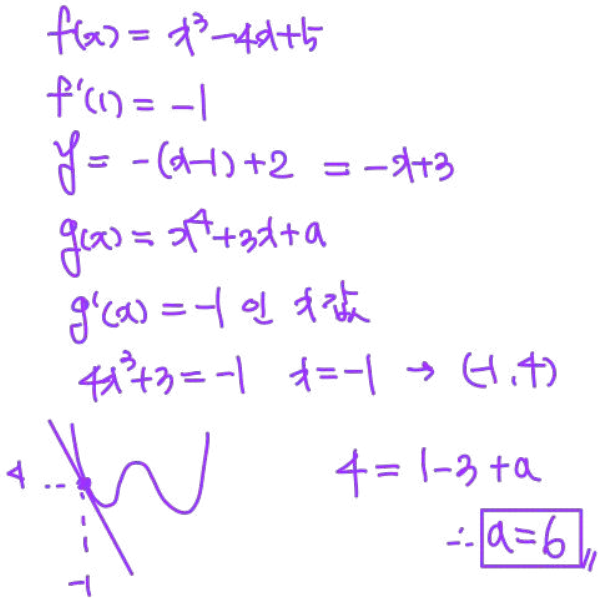 f(x) = x³-4x+5
f'(1) = -1
y = -(x-1)+2 = -x+3
g(x) = x⁴+3x+a
g'(x) = -1 인 x값
4x³+3 = -1 x = -1 → (-1, 4)
4 = 1-3+a
∴ a=6
4
-1